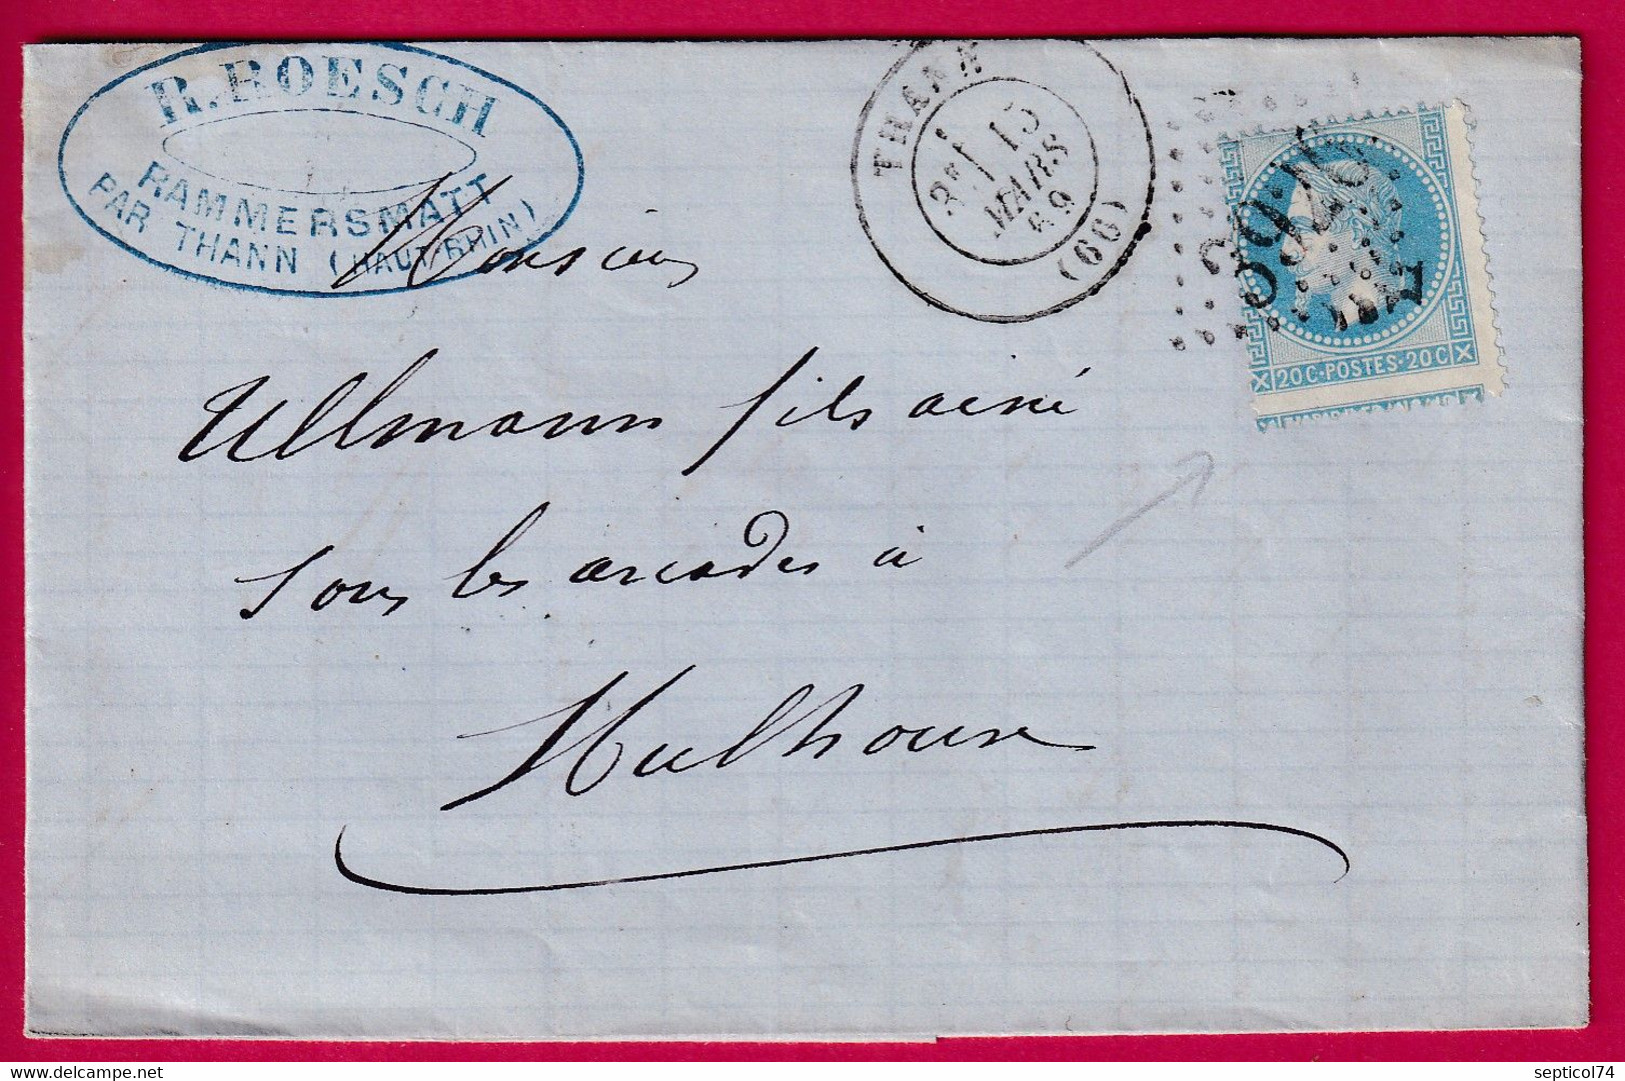 R. ROESCH
RAMMERSMATT
PAR THANN (HAUT-RHIN)
THANN
2E
15
MARS
69
(66)
20C·POSTES·20C
Monsieur
Ullmann fils ainé
Sous les arcades à
Mulhouse
delcampe.net
septicol74